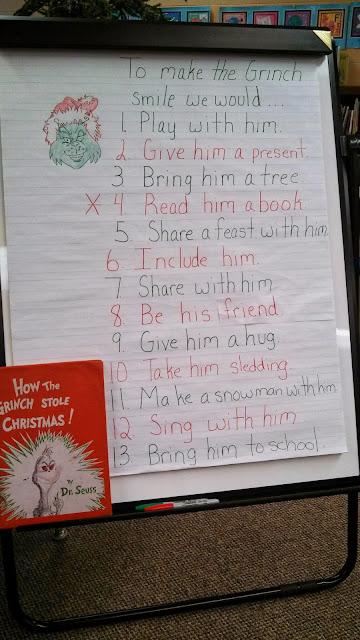 To make the Grinch
smile we would...
1. Play with him.
2. Give him a present.
3 Bring him a tree
X 4. Read him a book
5. Share a feast with him
6. Include him.
7. Share with him
8. Be his friend
9. Give him a hug.
10. Take him sledding.
11. Make a snowman with him
12. Sing with him
13. Bring him to school.
HOW THE
GRINCH STOLE
CHRISTMAS!
By
Dr. Seuss